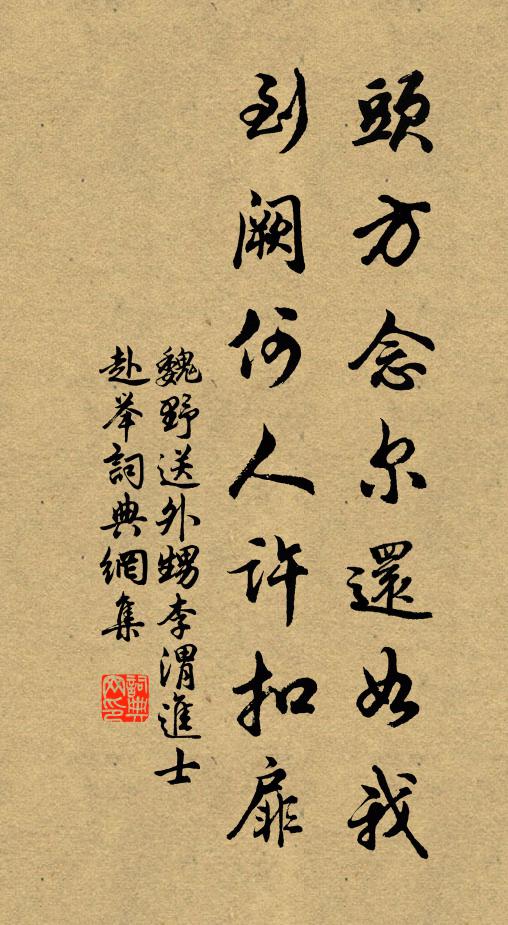 頭方念尔還如我
到闕何人許扣扉
魏野送外甥李渭進士
赴举詞典網集